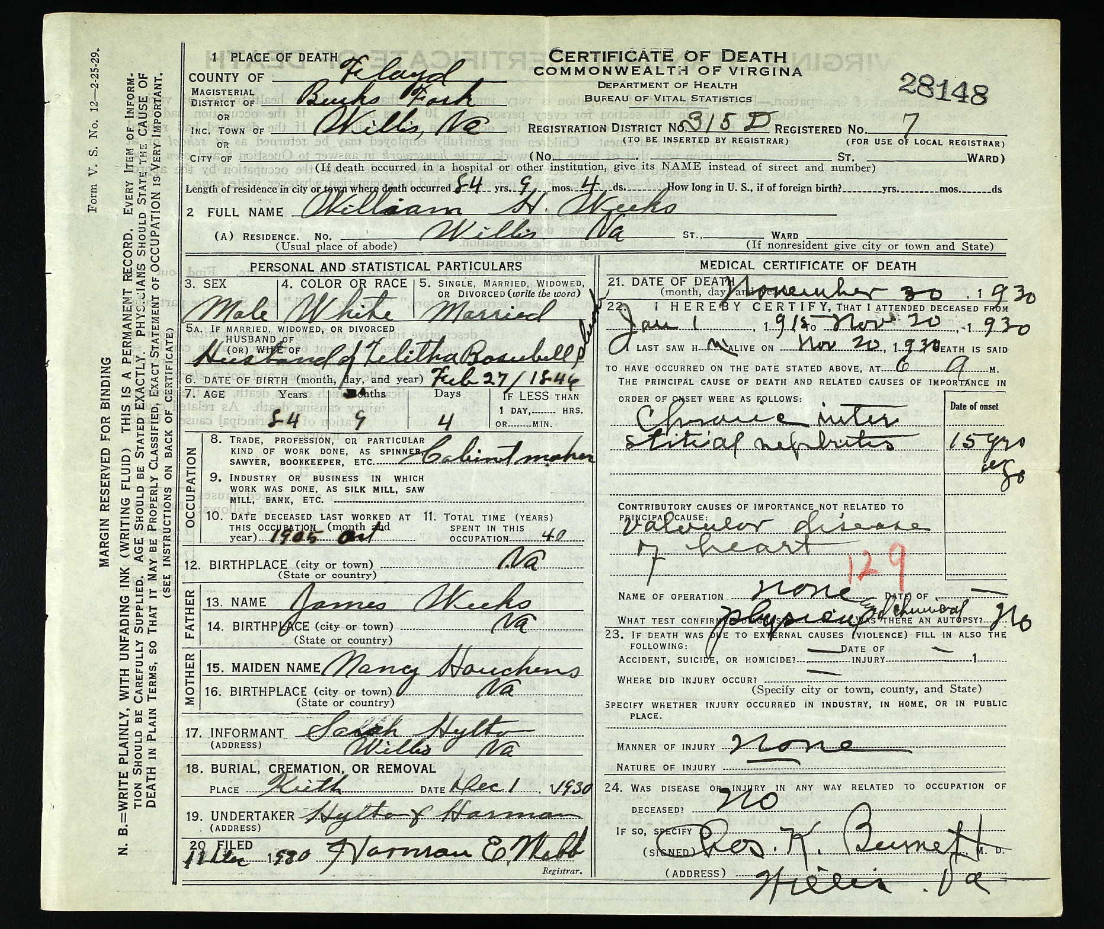 Form V. S. No. 12—2-25-29.
MARGIN RESERVED FOR BINDING
N. B.—WRITE PLAINLY, WITH UNFADING INK (WRITING FLUID) THIS IS A PERMANENT RECORD. EVERY ITEM OF INFORM-
TION SHOULD BE CAREFULLY SUPPLIED. AGE SHOULD BE STATED EXACTLY. PHYSICIANS SHOULD STATE THE CAUSE OF
DEATH IN PLAIN TERMS, SO THAT IT MAY BE PROPERLY CLASSIFIED, EXACT STATEMENT OF OCCUPATION IS VERY IMPORTANT.
(SEE INSTRUCTIONS ON BACK OF CERTIFICATE)
CERTIFICATE OF DEATH
COMMONWEALTH OF VIRGINIA
DEPARTMENT OF HEALTH
BUREAU OF VITAL STATISTICS
28148
1 PLACE OF DEATH
COUNTY OF Floyd
MAGISTERIAL DISTRICT OF Burks Fork
OR
INC. TOWN OF Willis, Va
OR
CITY OF
REGISTRATION DISTRICT No. 315 D REGISTERED No. 7
(TO BE INSERTED BY REGISTRAR) (FOR USE OF LOCAL REGISTRAR)
(No. ST., WARD)
(If death occurred in a hospital or other institution, give its NAME instead of street and number)
Length of residence in city or town where death occurred 84 yrs. 9 mos. 4 ds. How long in U. S., if of foreign birth? yrs. mos. ds
2 FULL NAME William H. Weeks
(A) RESIDENCE. No. Willis Va ST., WARD
(Usual place of abode) (If nonresident give city or town and State)
PERSONAL AND STATISTICAL PARTICULARS
3. SEX 4. COLOR OR RACE 5. SINGLE, MARRIED, WIDOWED, OR DIVORCED (write the word)
Male White Married
5A. IF MARRIED, WIDOWED, OR DIVORCED
HUSBAND OF
(OR) WIFE OF
Husband of Telitha
6. DATE OF BIRTH (month, day, and year) Feb 27/1846
7. AGE Years Months Days IF LESS THAN
1 DAY, HRS.
OR MIN.
84 9 4
OCCUPATION
8. TRADE, PROFESSION, OR PARTICULAR
KIND OF WORK DONE, AS SPINNER,
SAWYER, BOOKKEEPER, ETC. Cabinet maker
9. INDUSTRY OR BUSINESS IN WHICH
WORK WAS DONE, AS SILK MILL, SAW
MILL, BANK, ETC.
10. DATE DECEASED LAST WORKED AT
THIS OCCUPATION (month and
year) 1905 Oct
11. TOTAL TIME (YEARS)
SPENT IN THIS
OCCUPATION 40
12. BIRTHPLACE (city or town) Va
(State or country)
FATHER
13. NAME James Weeks
14. BIRTHPLACE (city or town) Va
(State or country)
MOTHER
15. MAIDEN NAME Nancy Houchens
16. BIRTHPLACE (city or town) Va
(State or country)
17. INFORMANT Sarah Hylto
(ADDRESS) Willis Va
18. BURIAL, CREMATION, OR REMOVAL
PLACE Keith DATE Dec 1 1930
19. UNDERTAKER Hylto & Harman
(ADDRESS)
20 FILED
11 Dec 1930 Harman E. Webb
Registrar.
MEDICAL CERTIFICATE OF DEATH
21. DATE OF DEATH
(month, day, and November 30, 1930
22. I HEREBY CERTIFY, THAT I ATTENDED DECEASED FROM
Jan 1 1915 to Nov 20, 1930
I LAST SAW H m ALIVE ON Nov 20, 1930 DEATH IS SAID
TO HAVE OCCURRED ON THE DATE STATED ABOVE, AT 6 a M.
THE PRINCIPAL CAUSE OF DEATH AND RELATED CAUSES OF IMPORTANCE IN
ORDER OF ONSET WERE AS FOLLOWS:
Date of onset
Chronic inter
stitial nephritis 15 yrs
ago
CONTRIBUTORY CAUSES OF IMPORTANCE NOT RELATED TO
PRINCIPAL CAUSE:
Valvular disease
of heart
129
NAME OF OPERATION none DATE OF
WHAT TEST CONFIRMED WAS THERE AN AUTOPSY? No
23. IF DEATH WAS DUE TO EXTERNAL CAUSES (VIOLENCE) FILL IN ALSO THE
FOLLOWING:
ACCIDENT, SUICIDE, OR HOMICIDE? DATE OF INJURY 1
WHERE DID INJURY OCCUR?
(Specify city or town, county, and State)
SPECIFY WHETHER INJURY OCCURRED IN INDUSTRY, IN HOME, OR IN PUBLIC
PLACE.
MANNER OF INJURY none
NATURE OF INJURY
24. WAS DISEASE OR INJURY IN ANY WAY RELATED TO OCCUPATION OF
DECEASED? No
IF SO, SPECIFY
(SIGNED) Chos. K. Burnett M. D.
(ADDRESS) Willis Va